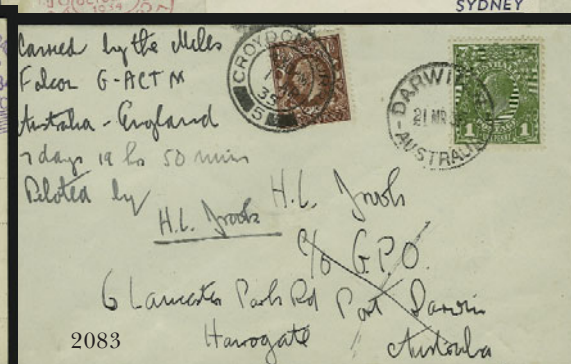 SYDNEY
Carried by the Miles
Falcon G-ACTM
Australia - England
7 days 19 hrs 50 mins
Piloted by
H.L. Brook
CROYDON
35
5
DARWIN
21 MR 3
AUSTRALIA
1 1
H.L. Brook
c/o G.P.O.
Port Darwin
Australia
6 Lancaster Park Rd
Harrogate
2083